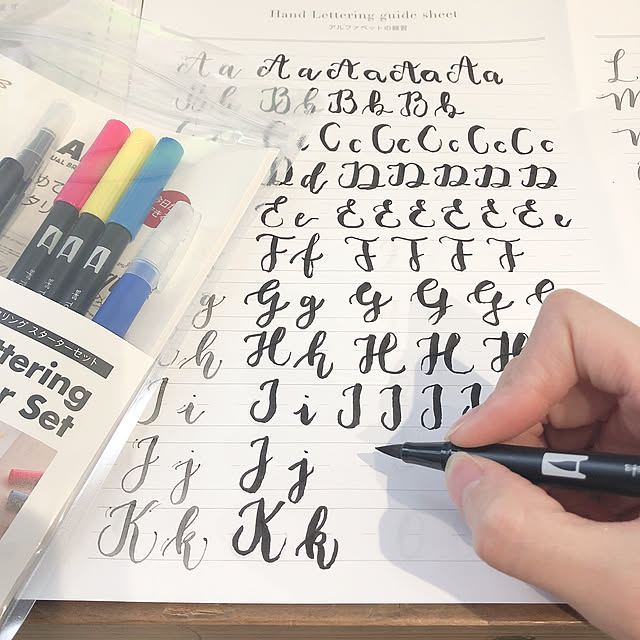 Hand Lettering guide sheet
アルファベットの練習
A a A a A a A a A a
B b B b B b B b
C c C c C c C c C c
D d D D D D D
E e E E E E E e
F f F F F F
g G g G G G
h H h H H H
I i I i I I I I
J j J j
K k K k
リング スターターセット
ttering
r Set
L
M